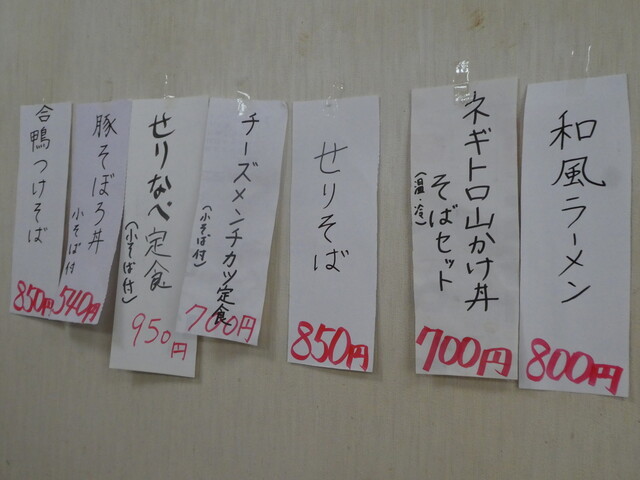 和風ラーメン
800円
ネギトロ山かけ丼
そばセット
(温、冷)
700円
せりそば
850円
チーズメンチカツ定食
(小そば付)
700円
せりなべ定食
(小そば付)
950円
豚そぼろ丼
小そば付
540円
合鴨つけそば
850円